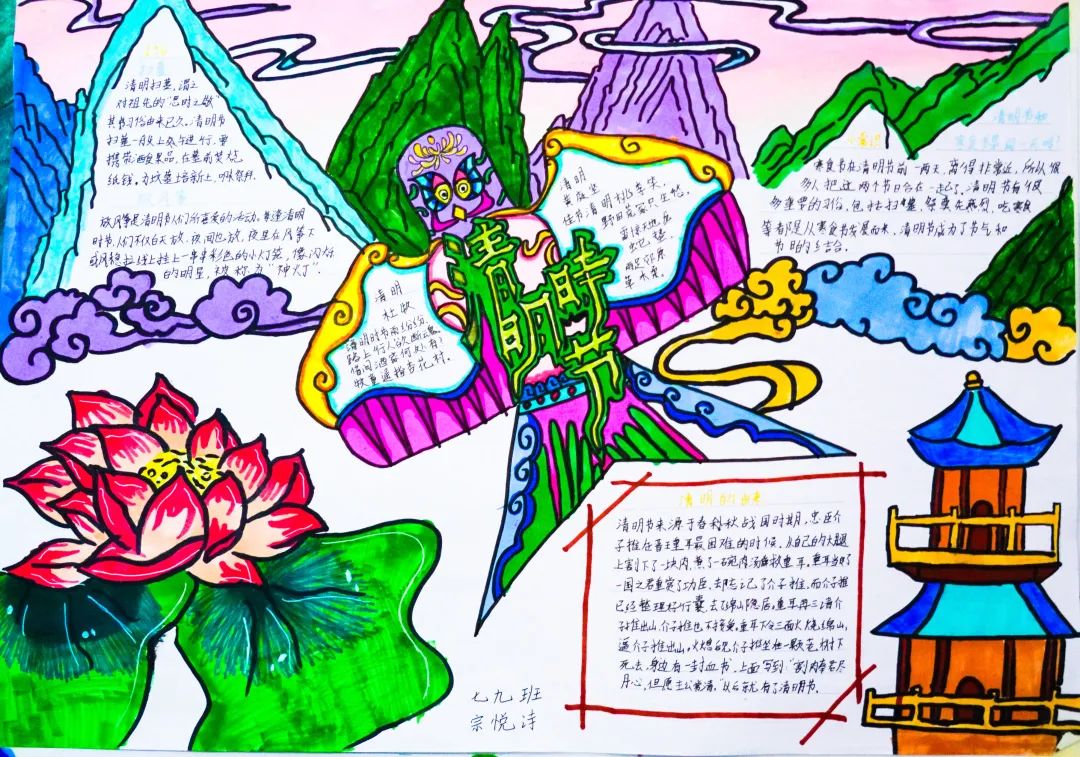 扫墓
清明扫墓，谓之
对祖先的“思时之敬”
其习俗由来已久。清明节
扫墓
携带酒食果品，在墓前焚化
纸钱。为坟墓培新土，叩头祭拜。
放风筝
放风筝是清明节人们所喜爱的活动。每逢清明
时节，人们不仅白天放，夜间也放，夜里在风筝下
或风稳拉线上挂上一串串彩色的小灯笼，像闪烁
的明星，被称为“神火灯”。
清明
杜牧
清明时节雨纷纷，
路上行人欲断魂。
借问酒家何处有？
牧童遥指杏花村。
清明时节
清明
黄庭坚
佳节清明桃李笑，
野田荒冢只生愁。
雷惊天地龙
蛇蛰，
雨足郊原
草木柔。
清明节和
寒食节是同一天吗？
小常识
寒食节在清明节前一两天，离得非常近，所以很
多人把这两个节日合在一起了。清明节有很
多重要的习俗，包括扫墓，祭奠先烈，吃寒食
等都是从寒食节发展而来，清明节成为了节气和
节日的综合。
清明的由来
清明节来源于春秋战国时期，忠臣介
子推在晋王重耳最困难的时候，从自己的大腿
上割下了一块肉，煮了一碗肉汤
一国之君重赏了功臣，却忘记了介子推。而介子推
已经整理好行囊，去了绵山隐居。重耳再三请介
子推出山，介子推也不接受。重耳下令三面火烧绵山，
逼介子推出山。火熄后见介子推坐在一颗老树下
死去，身边有一封血书，上面写到“割肉奉君尽
丹心，但愿主公常清明”从后就有了清明节。
七九班
宗悦诗